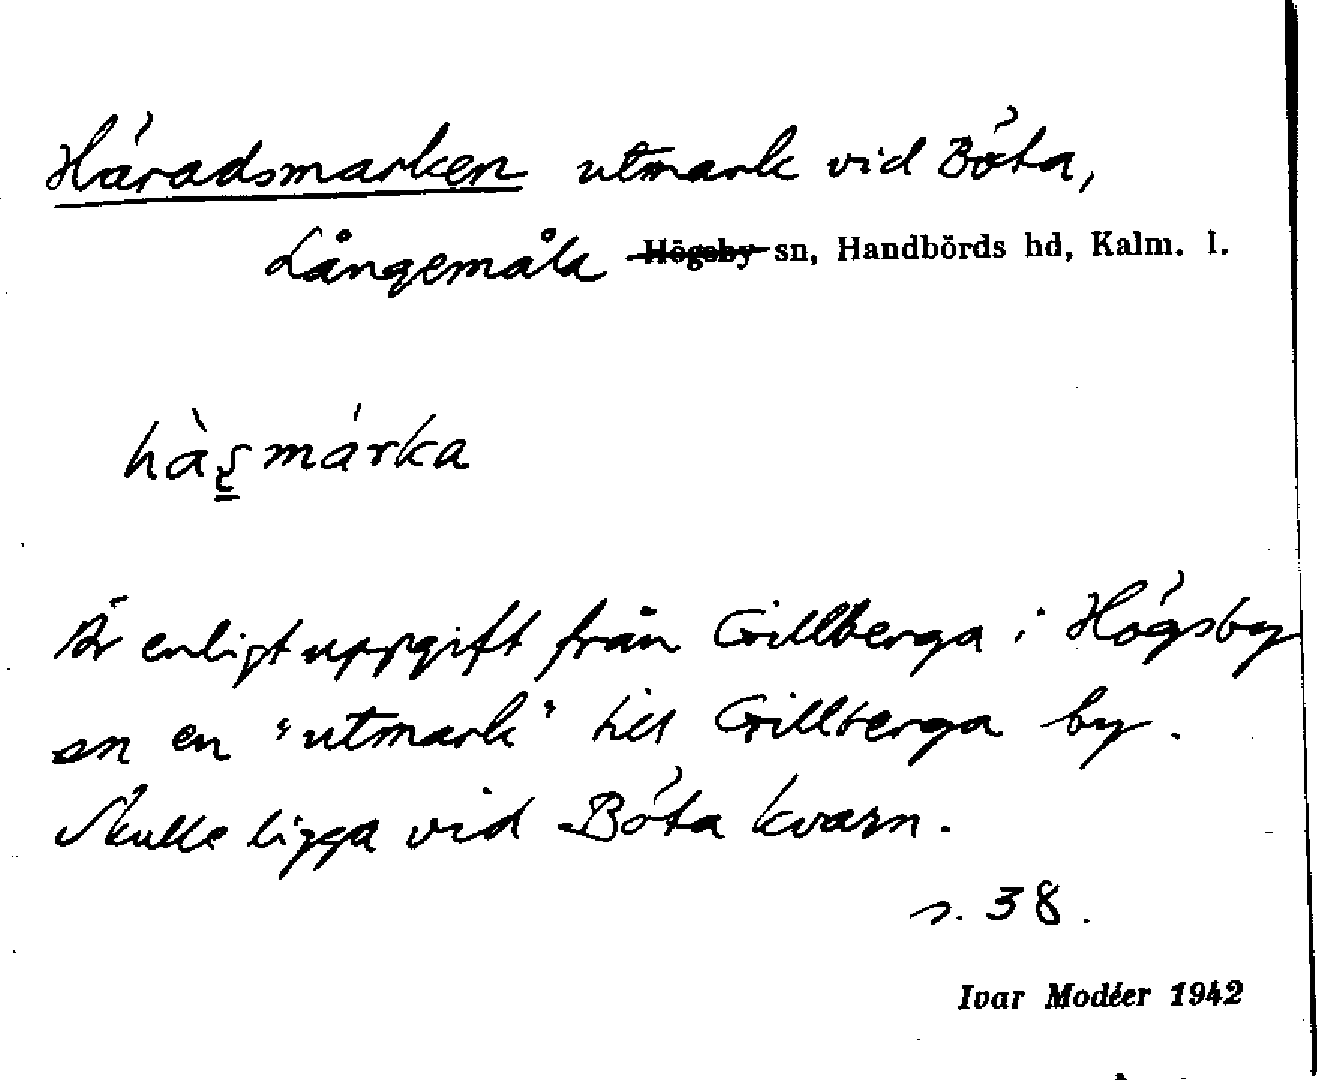 Häradsmarken utmark vid Böta,
Långemåla Högsby sn, Handbörds hd, Kalm. l.
Är enligt uppgift från Gillberga i Högsby
sn en "utmark" till Gillberga by.
Skulle ligga vid Böta kvarn.
s. 38.
Ivar Modéer 1942